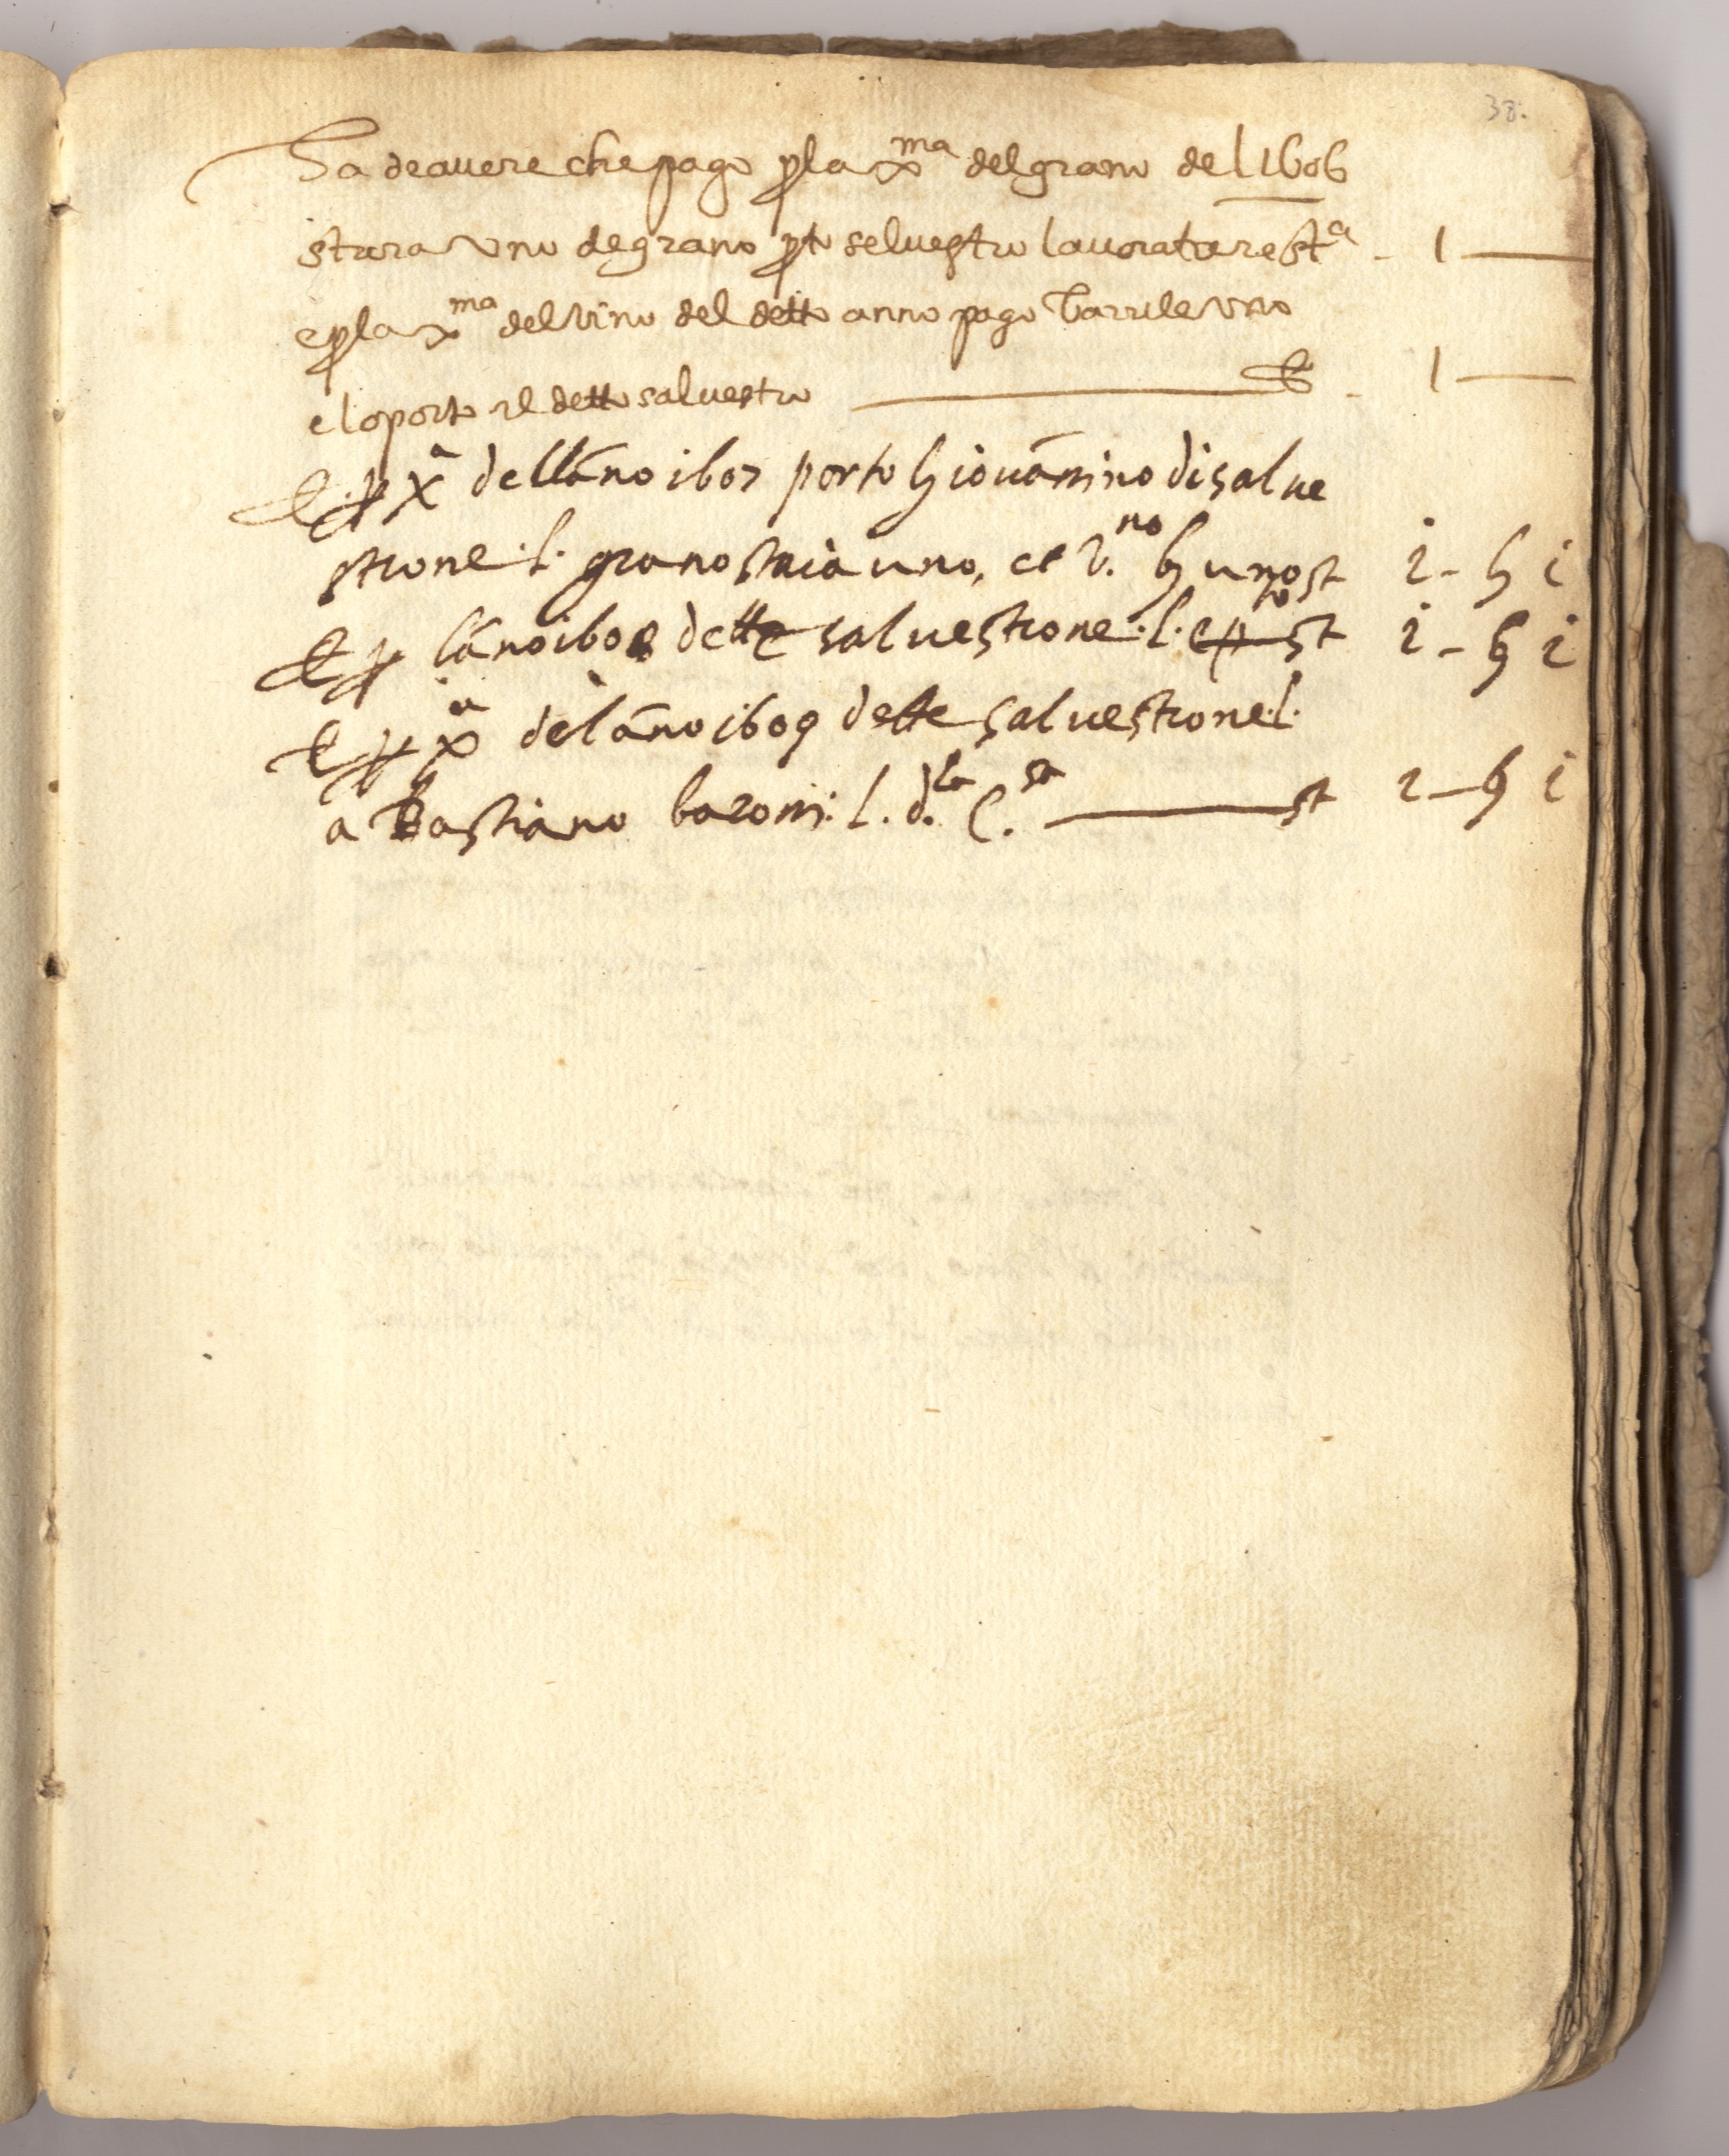 38.
Sa de avere che pago p la xma del grano del 1606
stara uno de grano pto selvestro lavoratore sta - 1 —
e p la xma del vino del detto anno pago barrile uno
e lo porto il detto salvestro — B - 1 —
Et p xa dell āno i607 porto Giovānino di salve
strone .l. grano staia uno, et v.no b uno st i - b i
Et p l āno i608 dette salvestrone .l. st i - b i
Et p xa del āno i609 dette salvestrone .l.
a Bastiano baroni .l. d.la C.sa — st i - b i